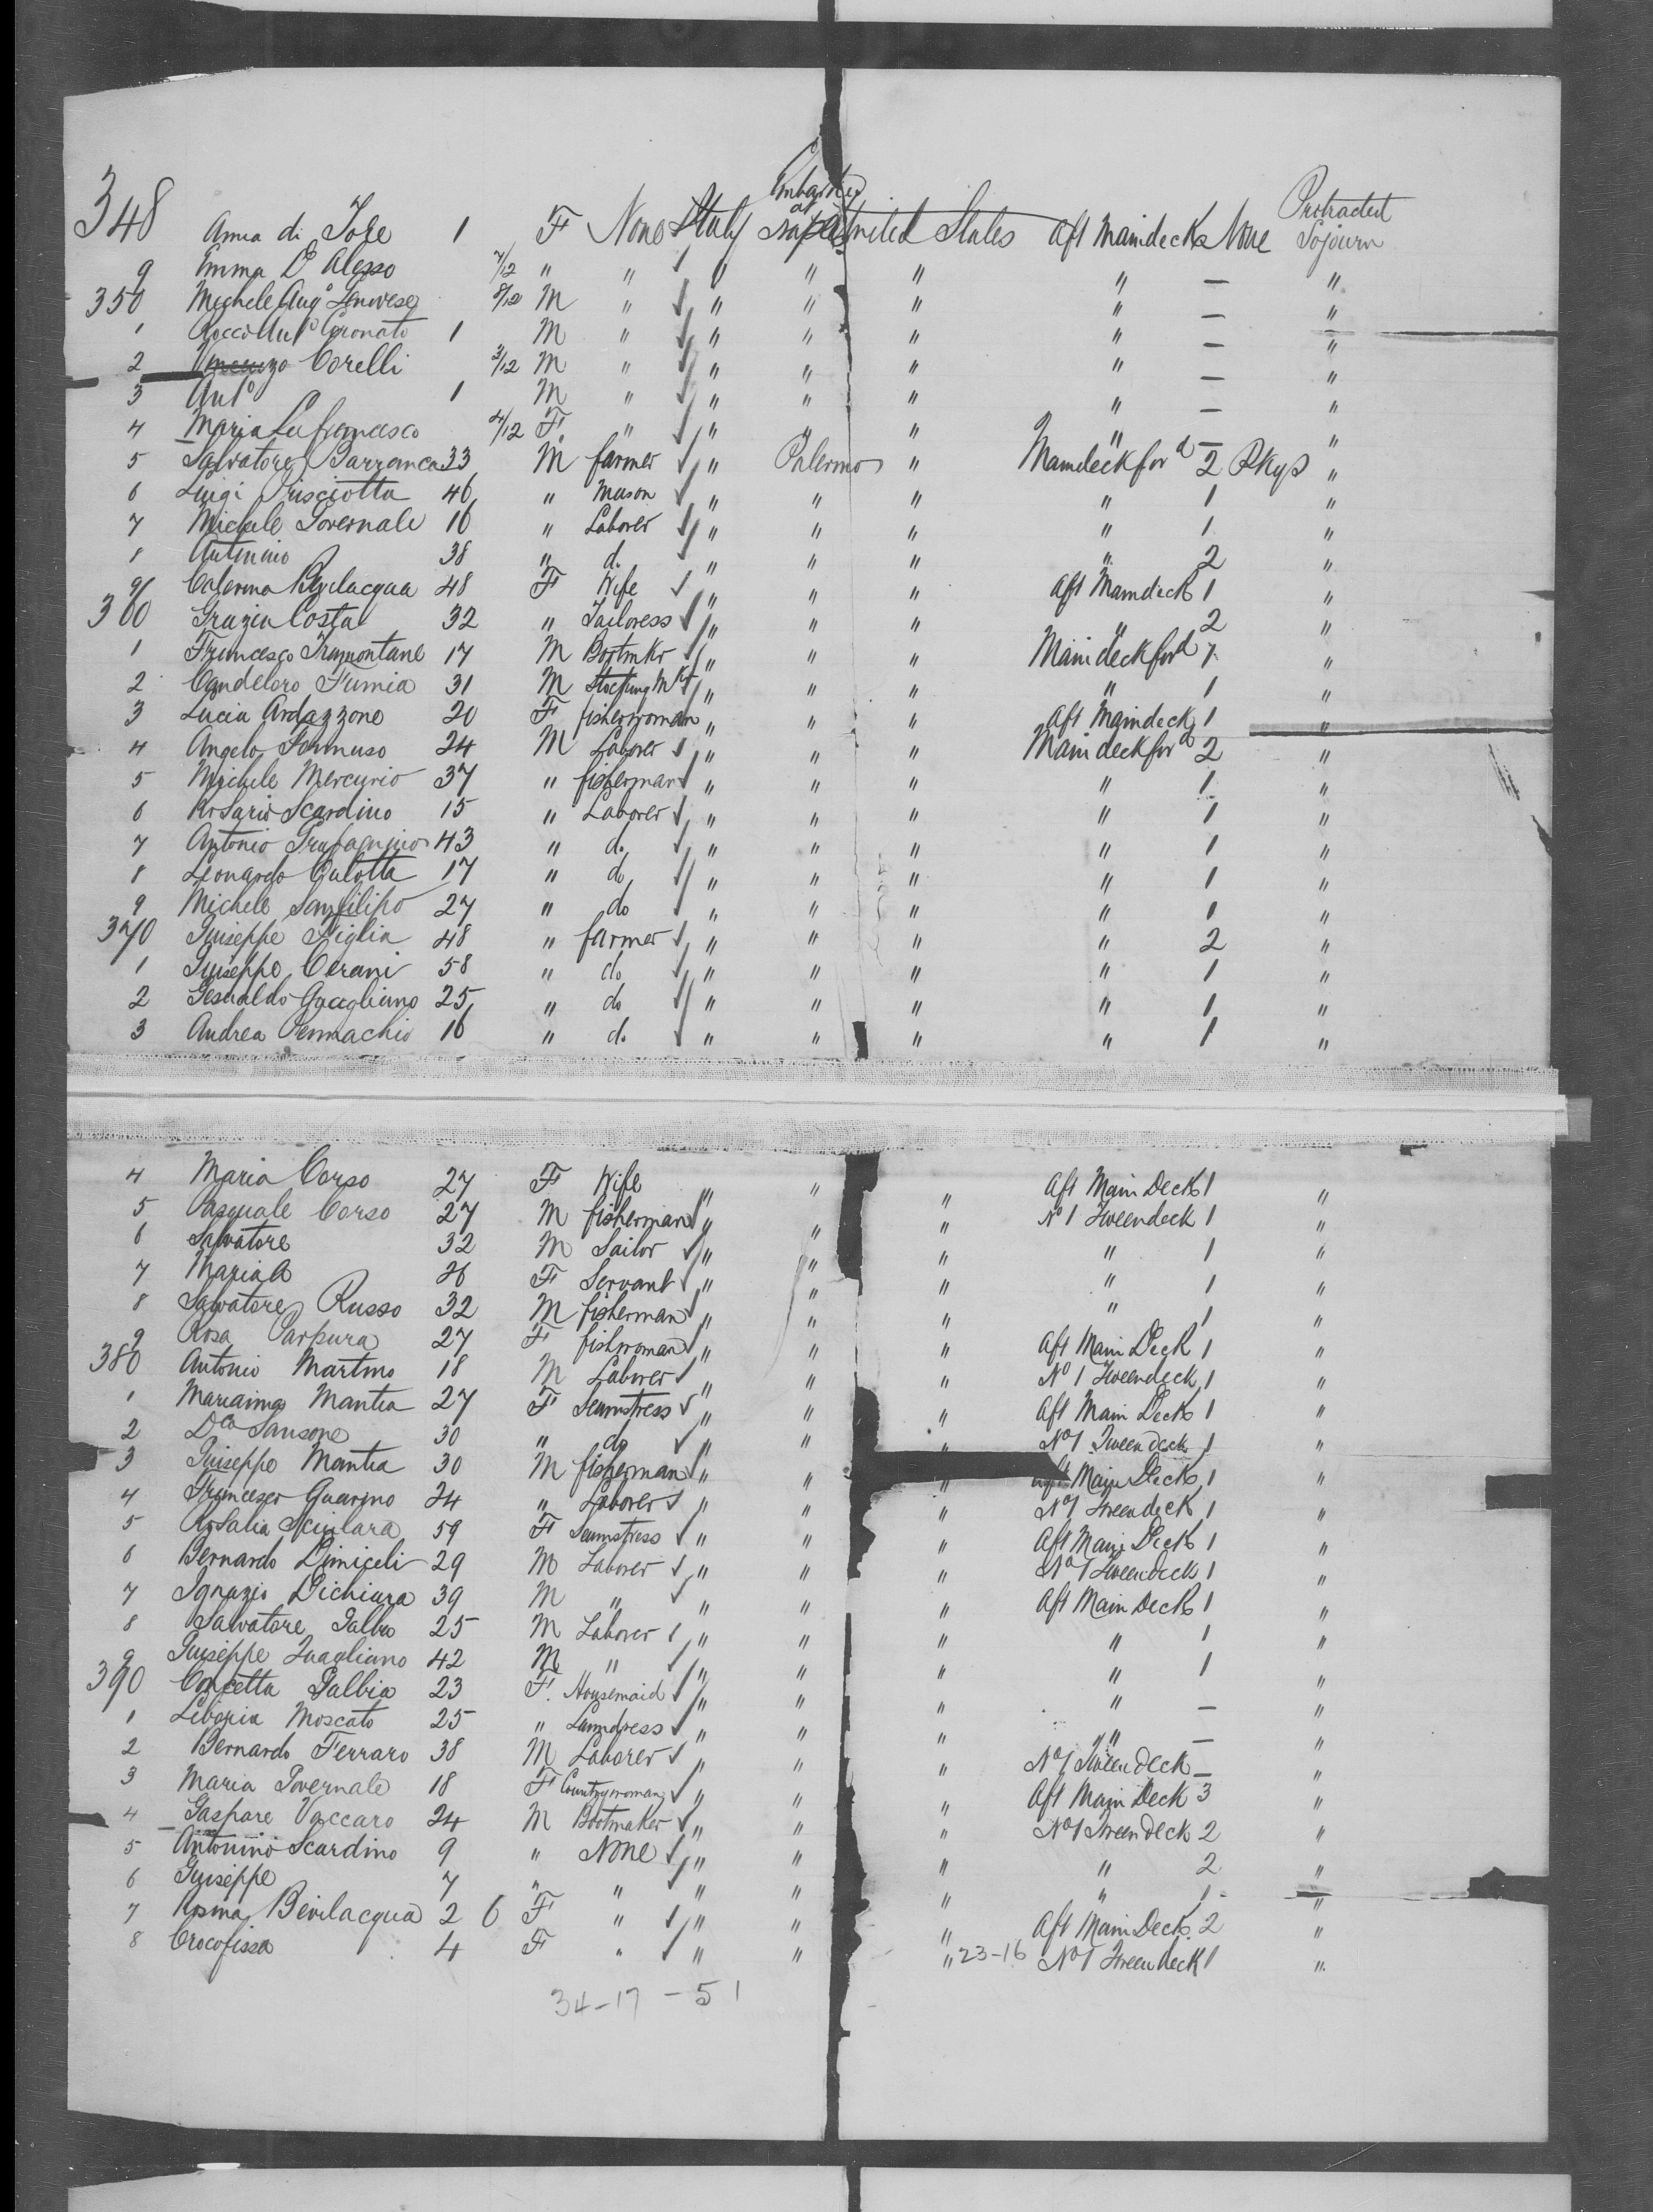 Embarked
at
Protracted
348 Anna di Tore 1 F None Italy Naples United States Aft Maindeck None Sojourn
9 Emma D'Alesso 7/12 " " " " " " — "
350 Michele Aug° Genovese 8/12 M " " " " " — "
1 Rocco Ant° Coronato 1 M " " " " " — "
2 Vincenzo Corelli 3/12 M " " " " " — "
3 Ant° 1 M " " " " " — "
4 Maria Lufrancesco 4/12 F " " " " " — "
5 Salvatore Barranca 33 M farmer " Palermo " Maindeck for^d 2 Pkgs "
6 Luigi Prisciotta 46 " Mason " " " " 1 "
7 Michele Governale 16 " Laborer " " " " 1 "
8 Antinino 38 " d. " " " " 2 "
9 Caterina Bevilacqua 48 F Wife " " " Aft Maindeck 1 "
360 Grazia Costa 32 " Tailoress " " " " 2 "
1 Francesco Tramontane 17 M Bootmkr " " " Maindeck for^d 1 "
2 Candeloro Fumia 31 M " " " " 1 "
3 Lucia Ardazzone 20 F fisherwoman " " " Aft Maindeck 1 "
4 Angelo Formuso 24 M Laborer " " " Maindeck for^d 2 "
5 Michele Mercurio 37 " fisherman " " " " 1 "
6 Rosario Scardino 15 " Laborer " " " " 1 "
7 Antonio Grafagnino 43 " d. " " " " 1 "
8 Leonardo Culotta 17 " do " " " " 1 "
9 Michele Sanfilipo 27 " do " " " " 1 "
370 Giuseppe Figlia 48 " farmer " " " " 2 "
1 Giuseppe Cerani 58 " do " " " " 1 "
2 Gesualdo Guagliano 25 " do " " " " 1 "
3 Andrea Pennachio 16 " d. " " " " 1 "
4 Maria Corso 27 F Wife " " " Aft Main Deck 1 "
5 Pasquale Corso 27 M fisherman " " " N° 1 Tweendeck 1 "
6 Salvatore 32 M Sailor " " " " 1 "
7 Maria A 26 F Servant " " " " 1 "
8 Salvatore Russo 32 M fisherman " " " " 1 "
9 Rosa Parpura 27 F fishwoman " " " Aft Main Deck 1 "
380 Antonio Martino 18 M Laborer " " " N° 1 Tweendeck 1 "
1 Marianna Mantia 27 F Seamstress " " " Aft Main Deck 1 "
2 D^ca Sansone 30 " do " " " N° 1 Tween deck 1 "
3 Giuseppe Mantia 30 M fisherman " " " Aft Main Deck 1 "
4 Francesco Guarino 24 " Laborer " " " N° 1 Tweendeck 1 "
5 Rosalia Scirlara 59 F Seamstress " " " Aft Main Deck 1 "
6 Bernardo Dimiceli 29 M Laborer " " " N° 1 Tweendeck 1 "
7 Ignazio Dichiara 39 M " " " " Aft Main Deck 1 "
8 Salvatore Galbo 25 M Laborer " " " " 1 "
9 Giuseppe Guagliano 42 M " " " " " 1 "
390 Concetta Galbia 23 F. Housemaid " " " " — "
1 Liboria Moscato 25 " Laundress " " " " — "
2 Bernardo Ferraro 38 M Laborer " " " N° 1 Tweendeck — "
3 Maria Governale 18 F Countrywoman " " " Aft Main Deck 3 "
4 Gaspare Vaccaro 24 M Bootmaker " " " N° 1 Tweendeck 2 "
5 Antonino Scardino 9 " None " " " " 2 "
6 Giuseppe 7 " " " " " " 1 "
7 Rosina Bevilacqua 2 6 F " " " " Aft Main Deck 2 "
8 Crocofissa 4 F " " " " 23-16 N° 1 Tweendeck 1 "
34-17-51